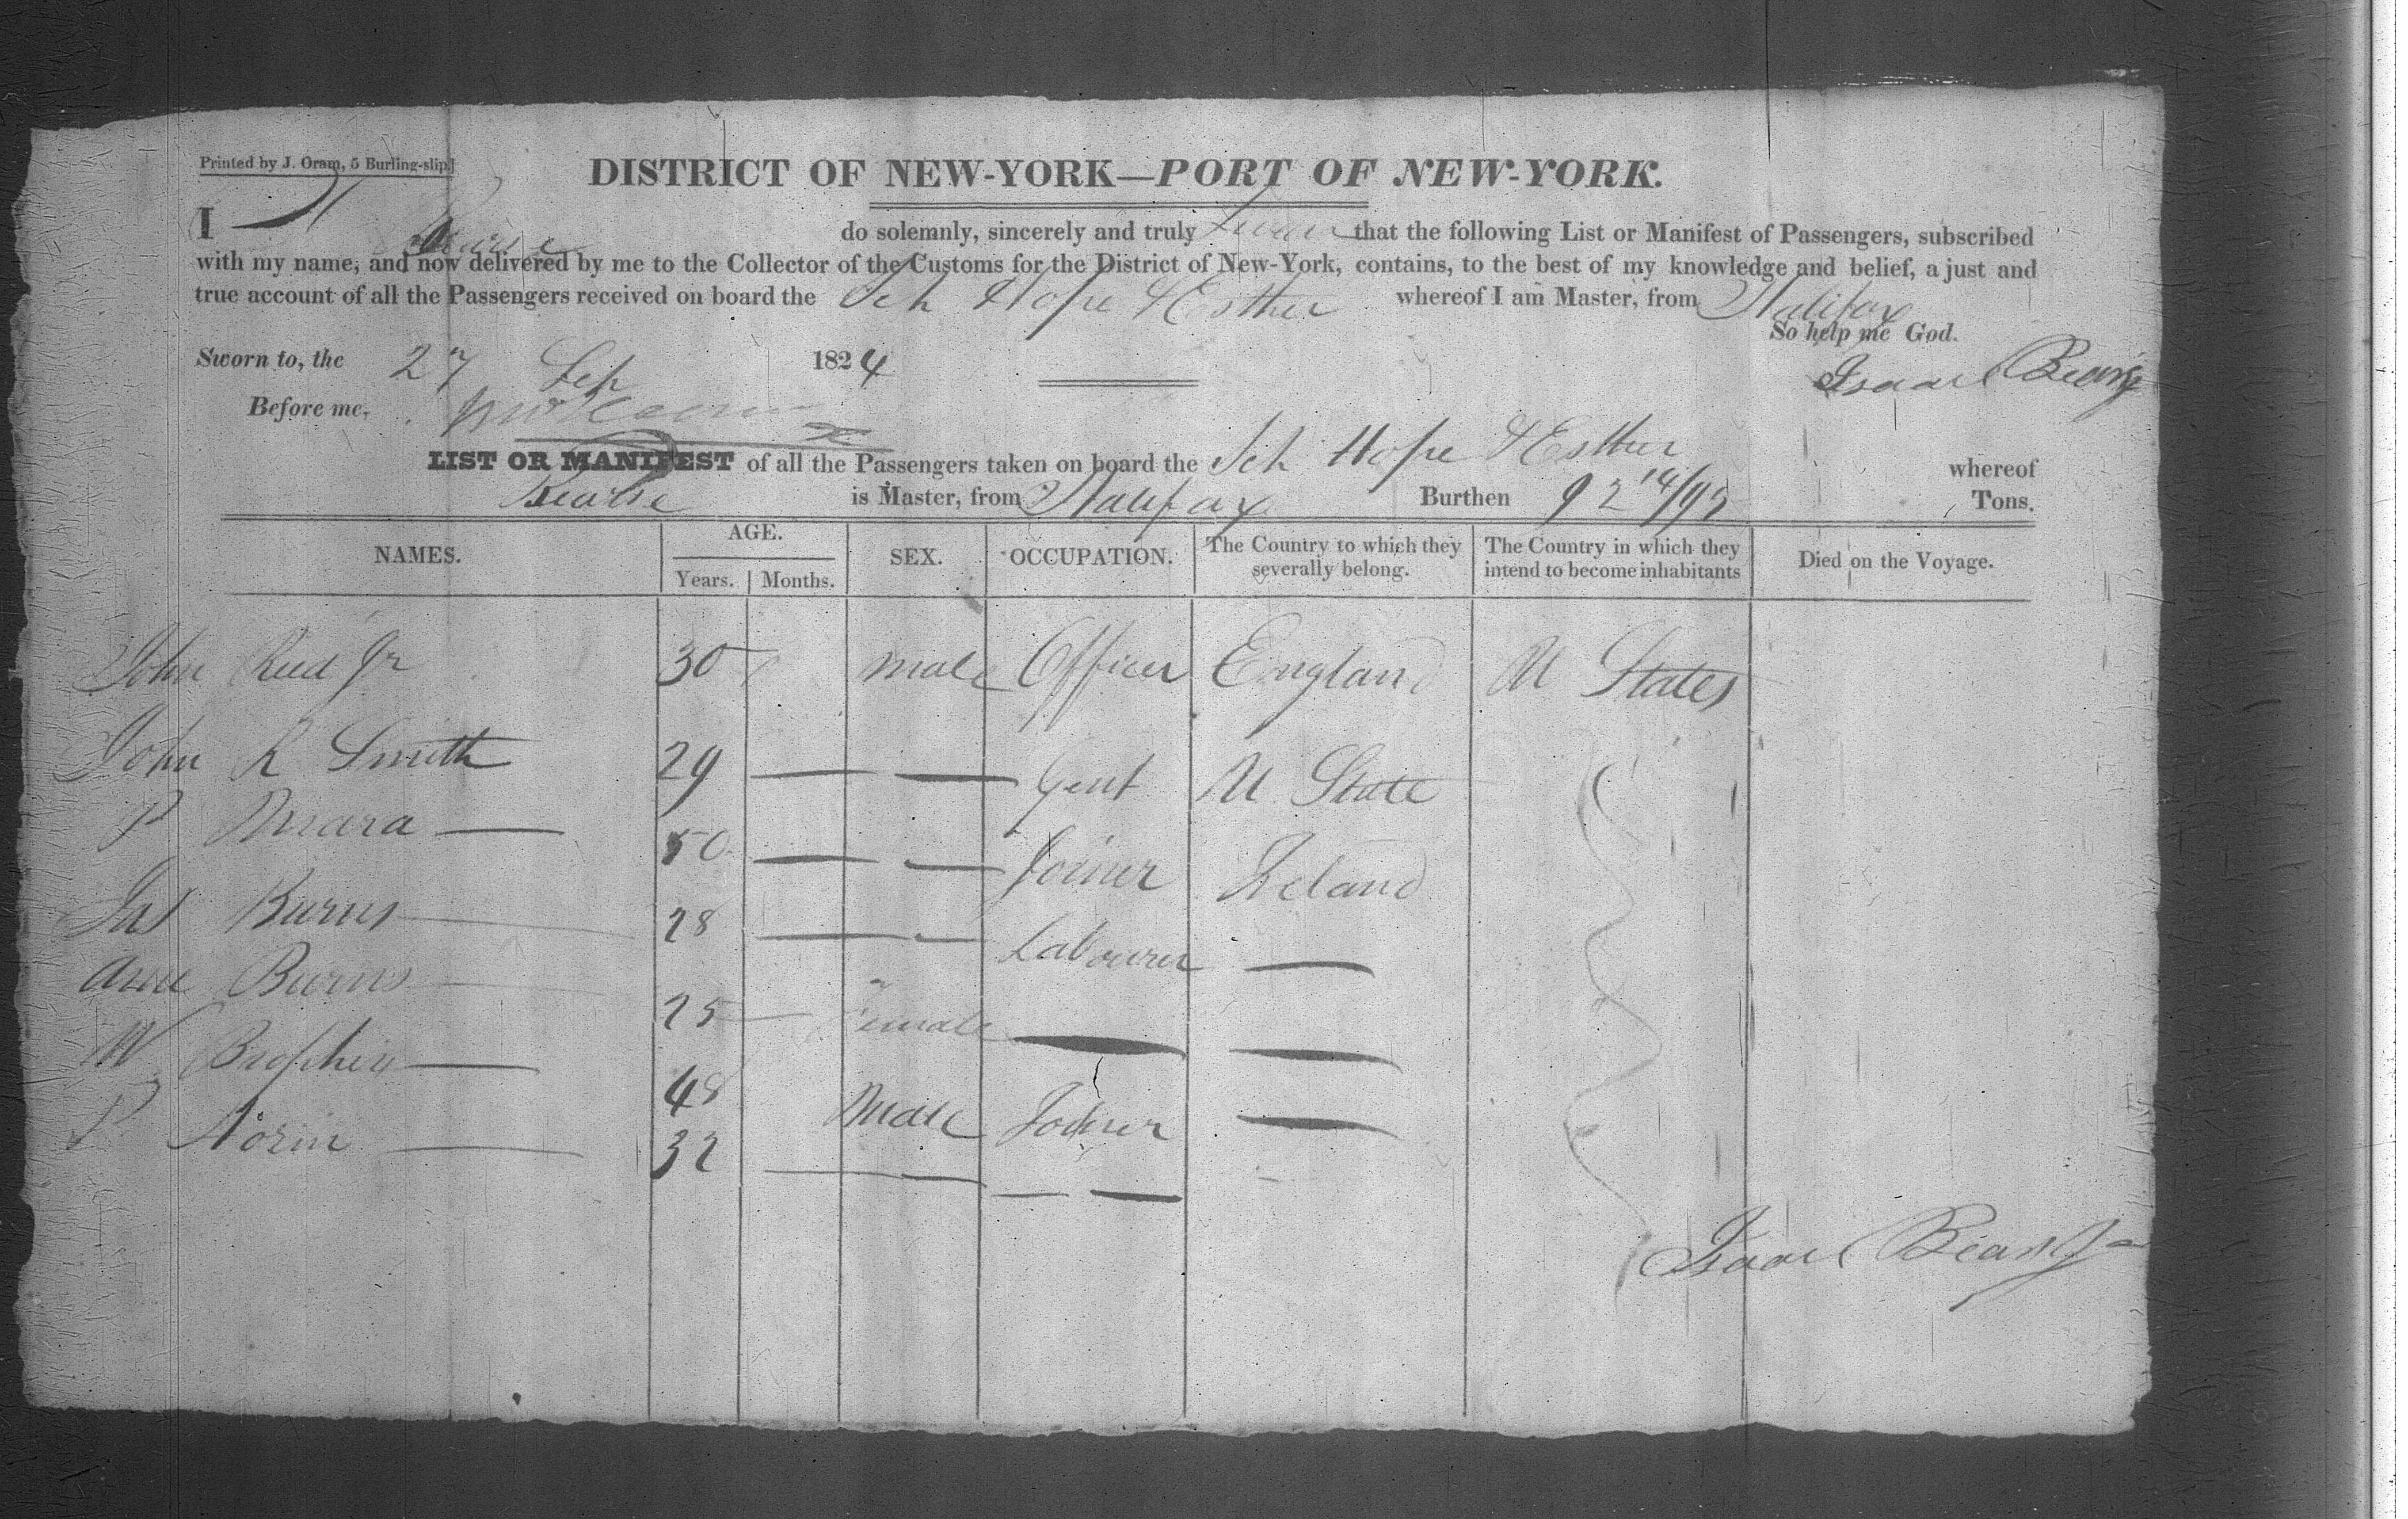 Printed by J. Oram, 5 Burling-slip]
DISTRICT OF NEW-YORK—PORT OF NEW-YORK.
I do solemnly, sincerely and truly Swear that the following List or Manifest of Passengers, subscribed
with my name, and now delivered by me to the Collector of the Customs for the District of New-York, contains, to the best of my knowledge and belief, a just and
true account of all the Passengers received on board the Sch Hope & Esther whereof I am Master, from Halifax
So help me God.
Sworn to, the 27 Sep 1824
Isaac
Before me,
LIST OR MANIFEST of all the Passengers taken on board the Sch Hope & Esther whereof
is Master, from Halifax Burthen 92 14/95 Tons.
NAMES. AGE. SEX. OCCUPATION. The Country to which they severally belong. The Country in which they intend to become inhabitants Died on the Voyage.
Years. Months.
John Reed Jr 30 male Officer England U States
John R Smith 29 — — Gent U State
P Meara — 50 — — Joiner Ireland
Jas Burns 28 — — Labourer —
Ann Burns 25 — Female — —
W Brophey — 48 Male Joiner —
P Norin — 32 — — — —
Isaac